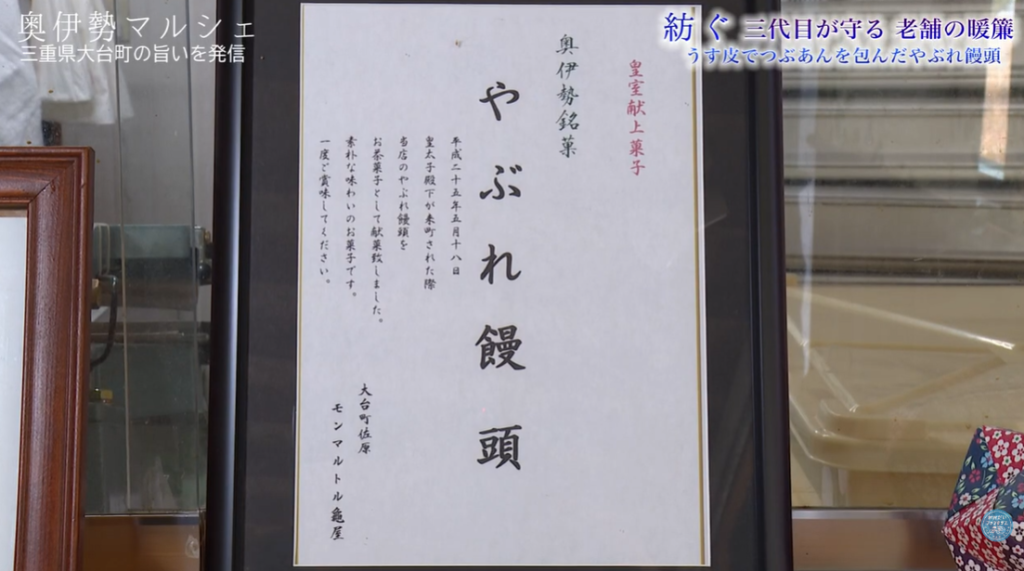 奥伊勢マルシェ
三重県大台町の旨いを発信
紡ぐ 三代目が守る 老舗の暖簾
うす皮でつぶあんを包んだやぶれ饅頭
皇室献上菓子
奥伊勢銘菓
やぶれ饅頭
平成二十五年五月十八日
皇太子殿下が来町された際
当店のやぶれ饅頭を
お茶菓子として献菓致しました。
素朴な味わいのお菓子です。
一度ご賞味してください。
大台町佐原
モンマルトル亀屋